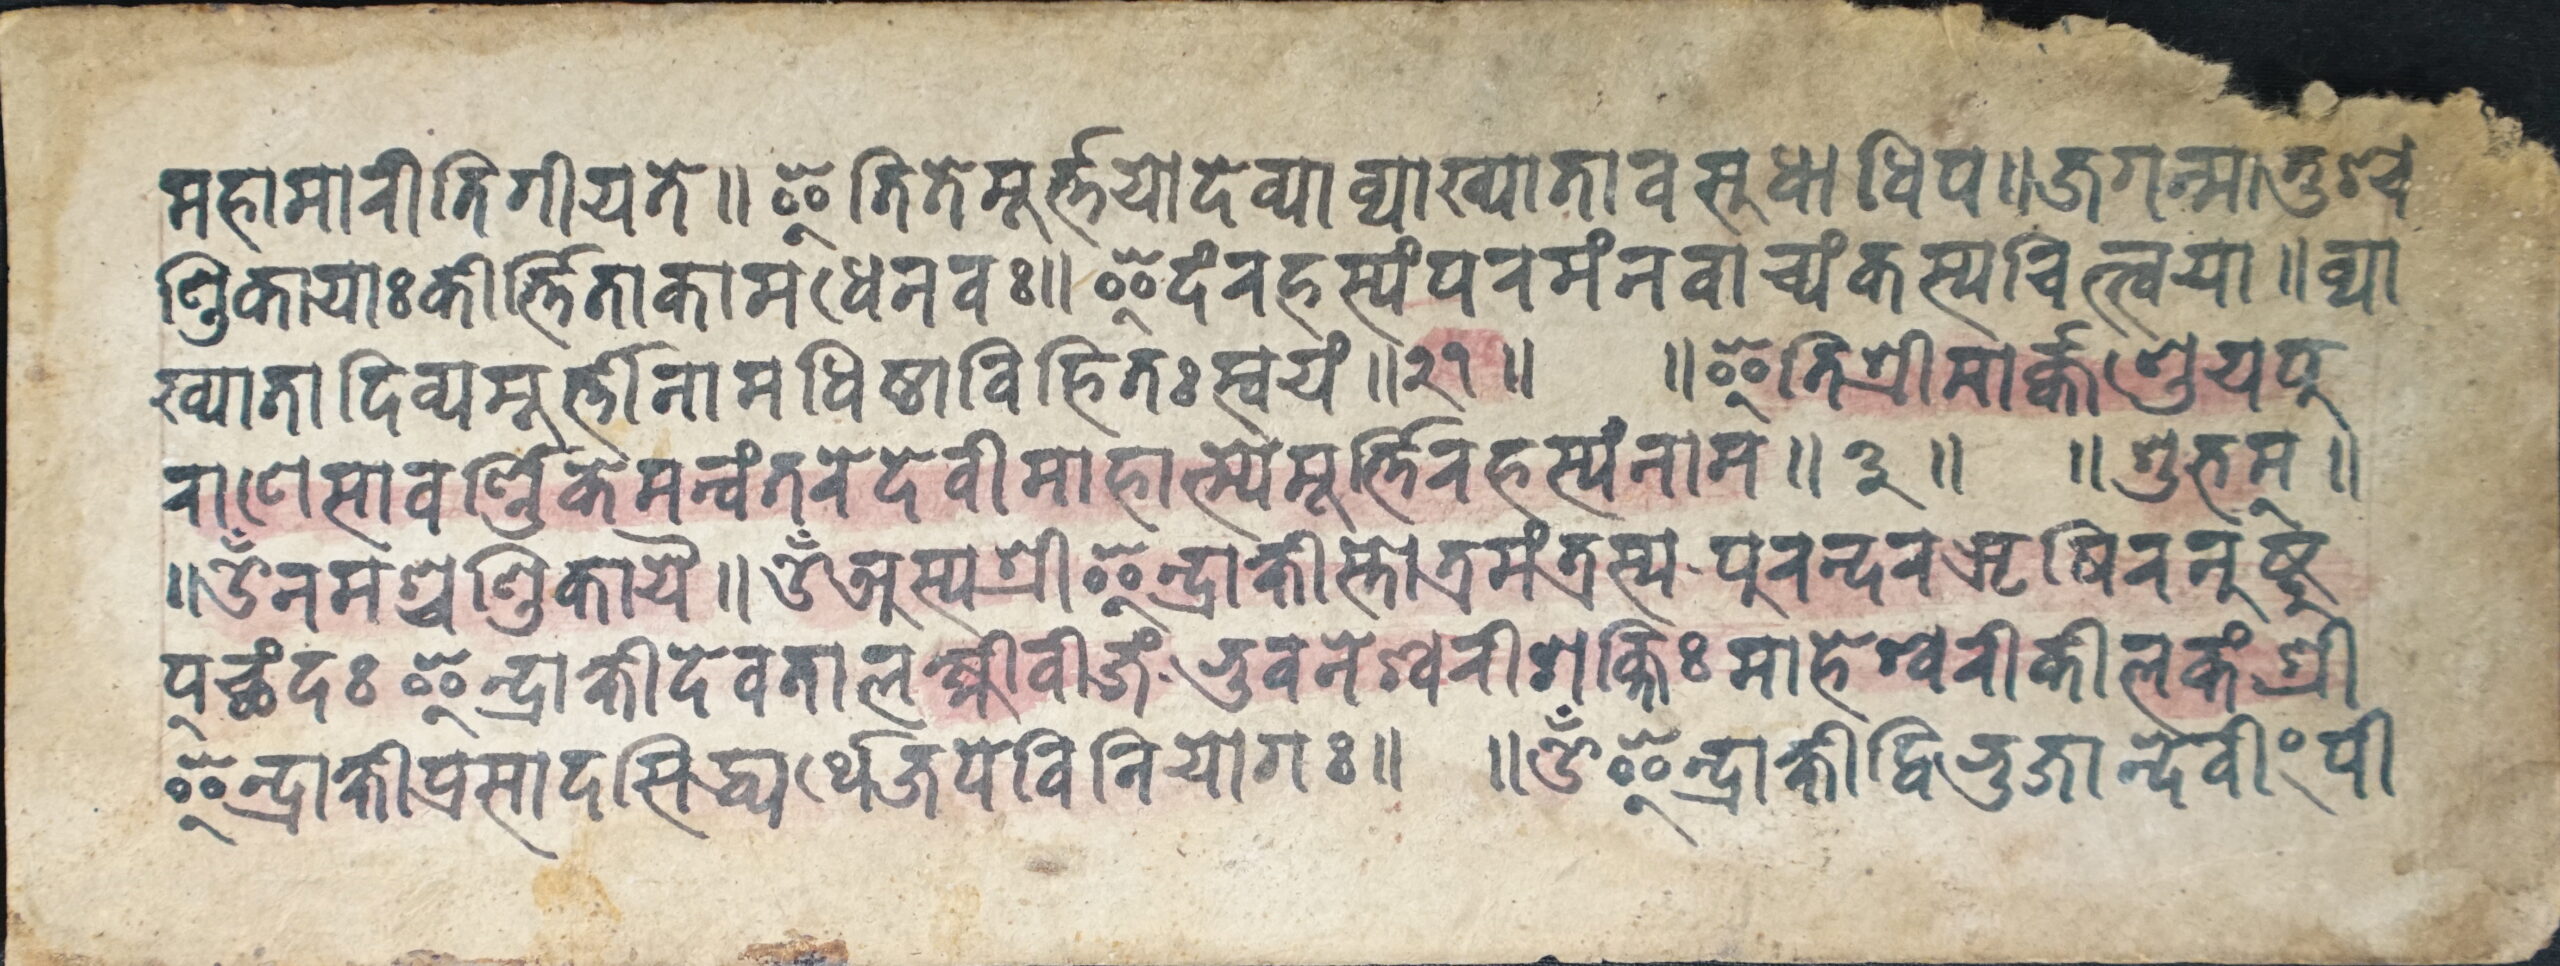 महामारीतिगीयते॥इतितेमूर्त्तयोदेव्याव्याख्यातावसुधाधिप॥जगन्मातुश्च
ण्डिकायाःकीर्त्तिताकामधेनवः॥इदंरहस्यंपरमंनवाच्यंकस्यचित्त्वया॥व्या
ख्यातादिव्यमूर्त्तीनामधिष्ठाविहितःस्वयं॥२१॥ ॥इतिश्रीमार्क्कण्डेयपु
राणेसावर्ण्णिकेमन्वंतरेदेवीमाहात्म्येमूर्त्तिरहस्यंनाम॥३॥ ॥शुभम्॥
॥ॐनमश्चण्डिकायै॥ॐअस्यश्रीइन्द्राक्षीस्तोत्रमंत्रस्य·पुरन्दरऋषिरनुष्टु
प्छंदःइन्द्राक्षीदेवतालक्ष्मीवीजं·भुवनेश्वरीशक्तिःमाहेश्वरीकीलकंश्री
इन्द्राक्षीप्रसादसिद्ध्यर्थेजपेविनियोगः॥ ॥ॐइन्द्राक्षीद्विभुजान्देवींपी